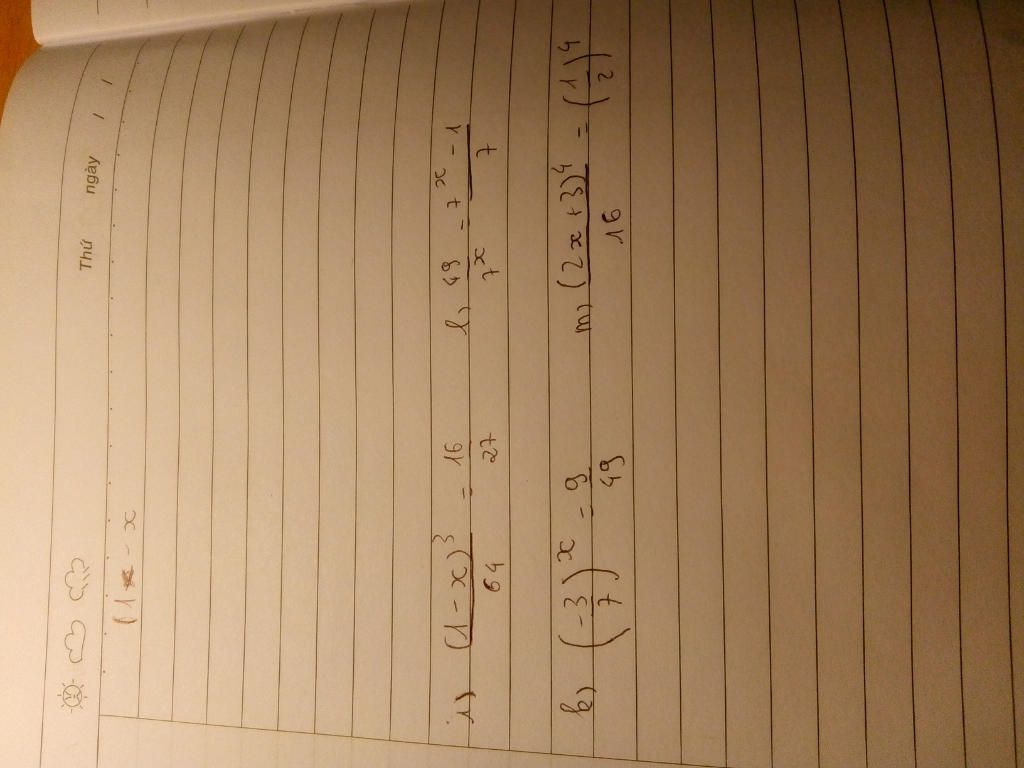 Thứ ngày / /
(1 - x
i) (1 - x)³/64 = 16/27 l, 49/7ˣ = 7ˣ - 1/7
k) (-3/7)ˣ = 9/49 m, (2x + 3)⁴/16 = (1/2)⁴